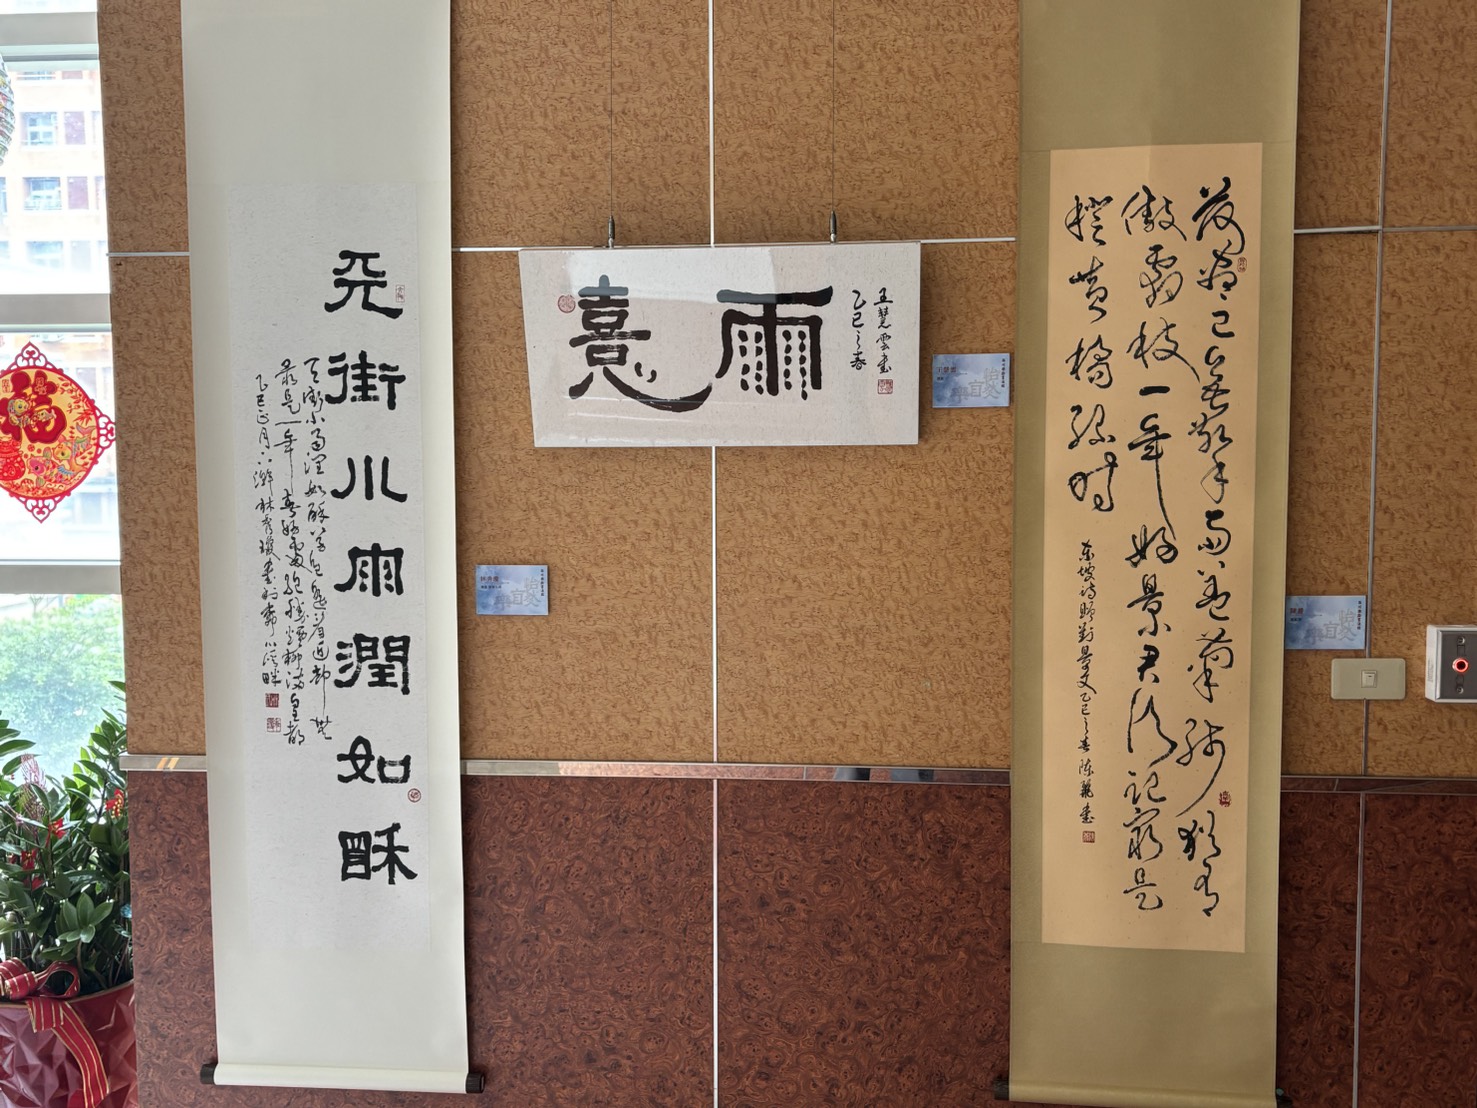 天街小雨潤如酥
天街小雨潤如酥草色遙看近卻無
最是一年春好處絕勝煙柳滿皇都
乙巳正月林秀瓊書於溪畔
憙雨
乙巳之春
王慧雲書
荷盡已無擎雨蓋菊殘猶有
傲霜枝一年好景君須記最是
橙黃橘綠時
東坡詩贈劉景文乙巳之春陳書
福